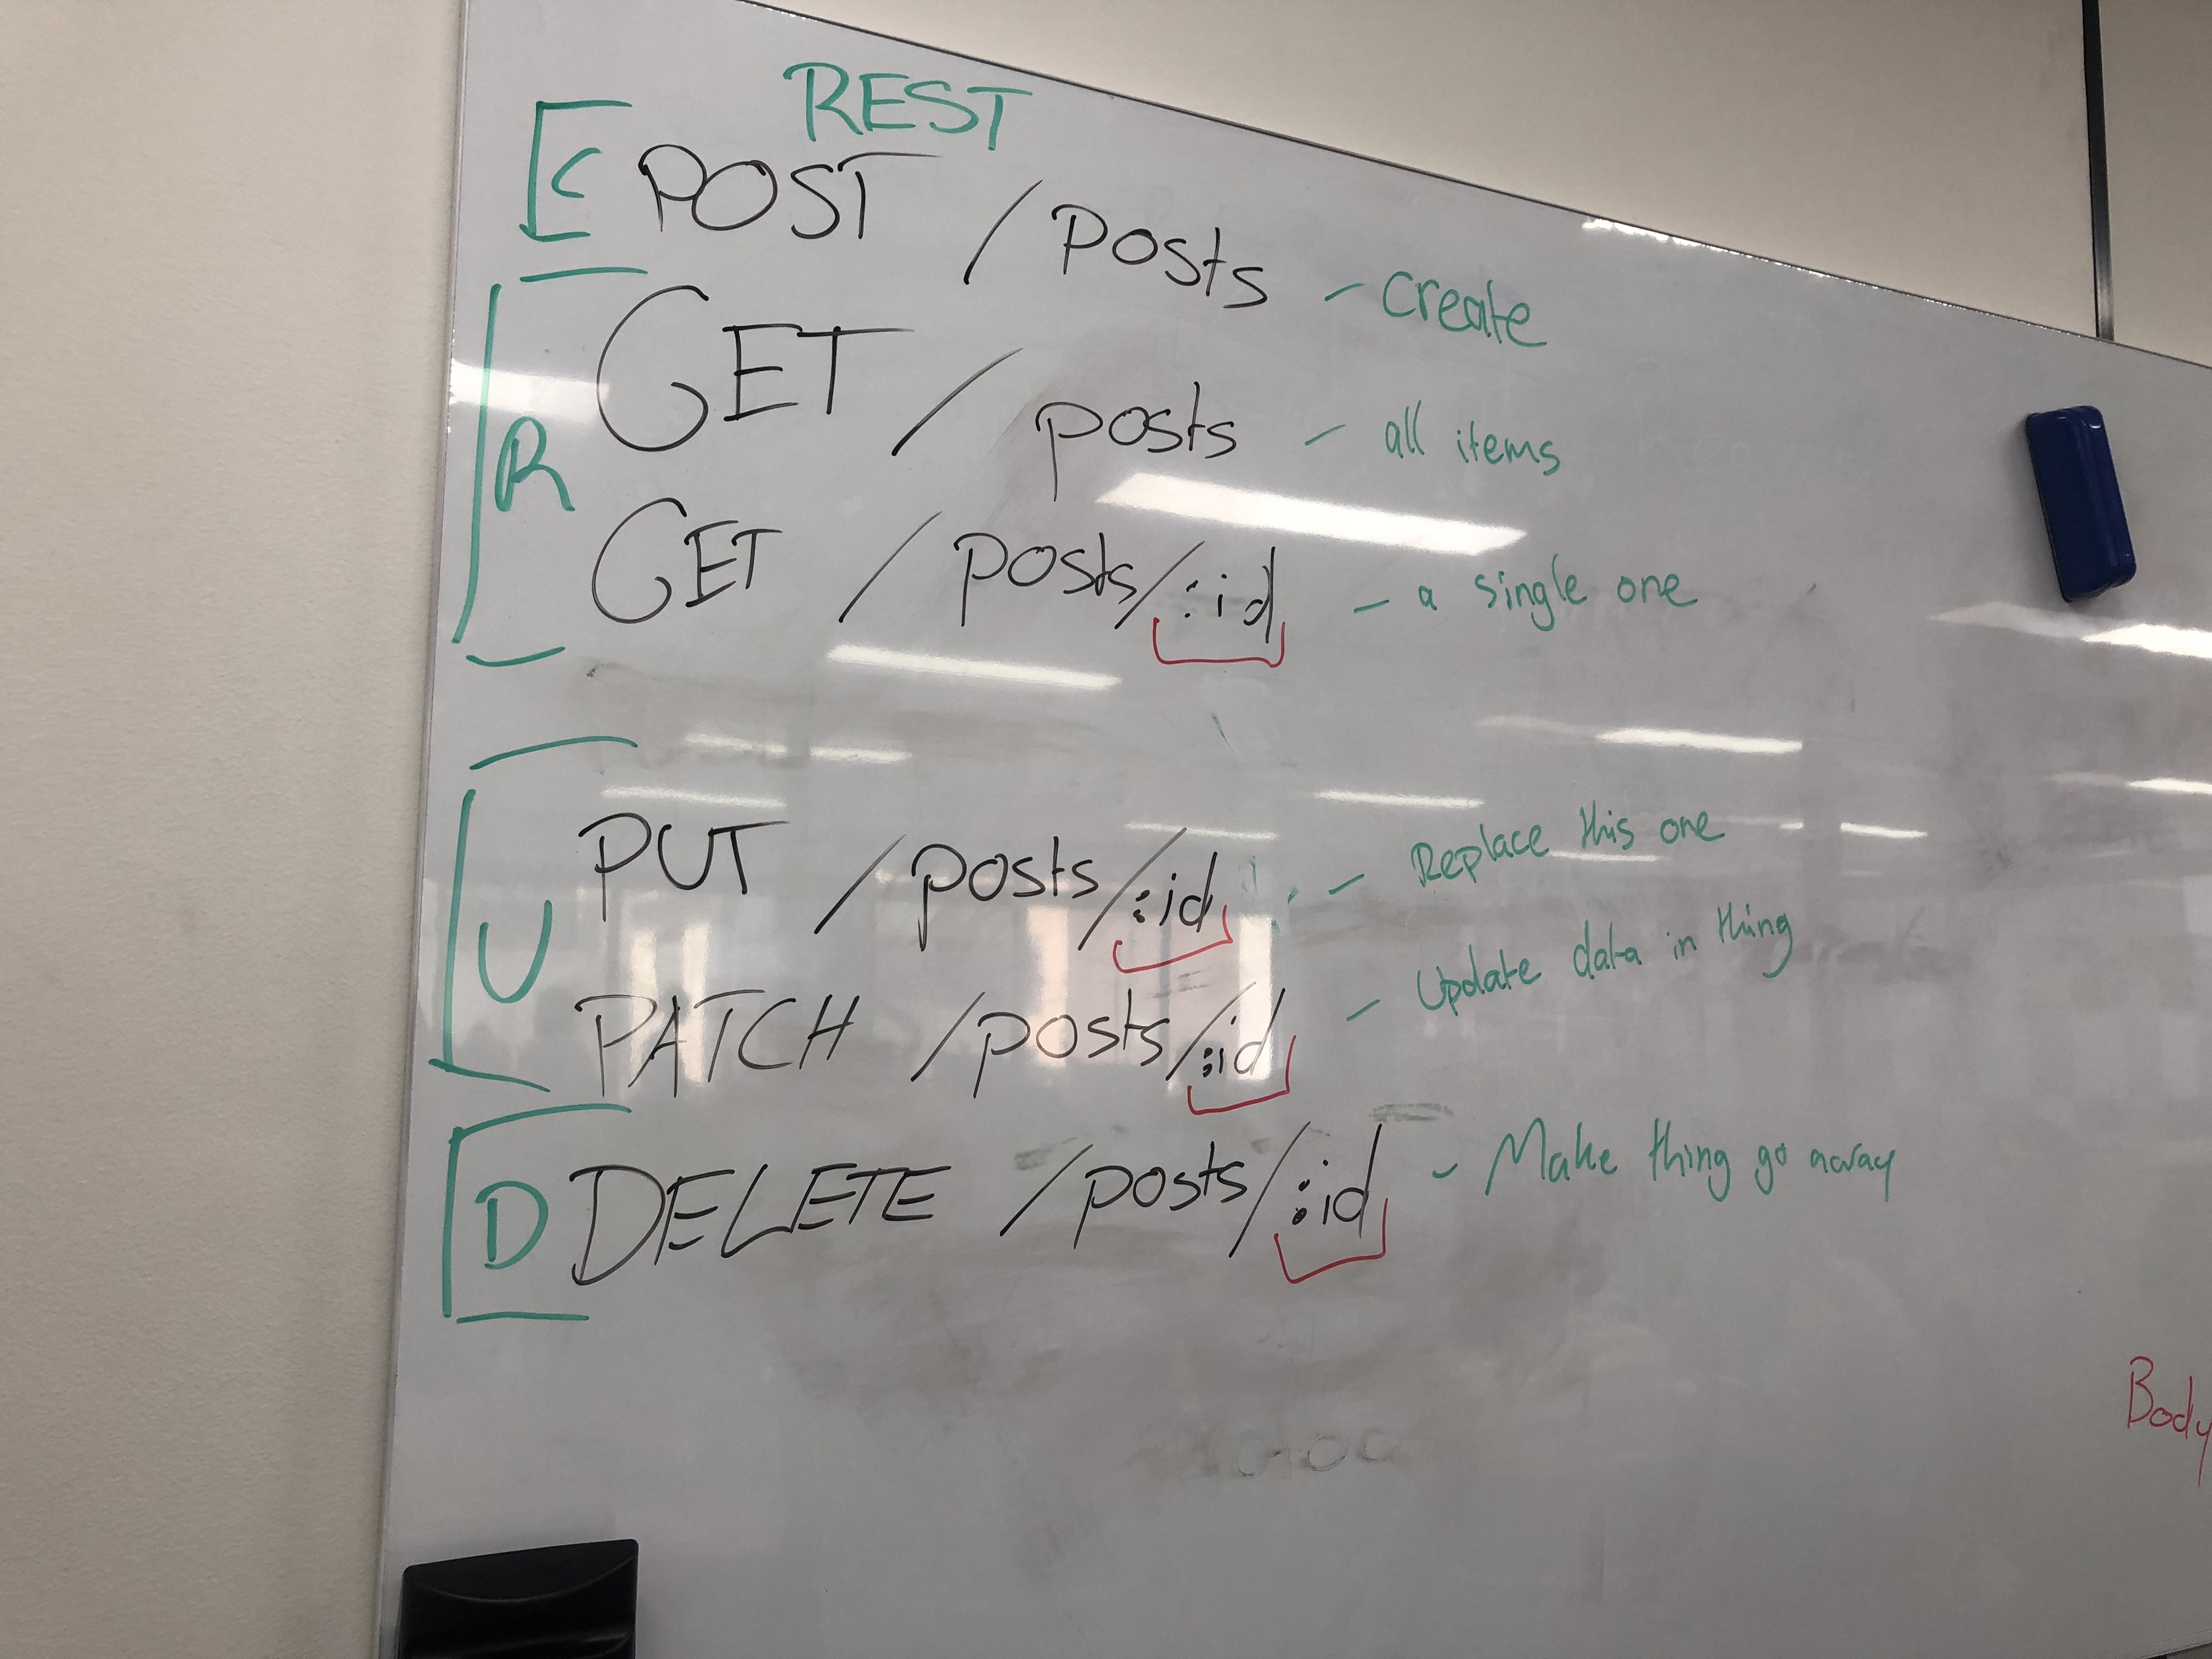 REST
C POST /posts - create
R GET /posts - all items
GET /posts/:id - a single one
U PUT /posts/:id - Replace this one
PATCH /posts/:id - Update data in thing
D DELETE /posts/:id - Make thing go away
Body